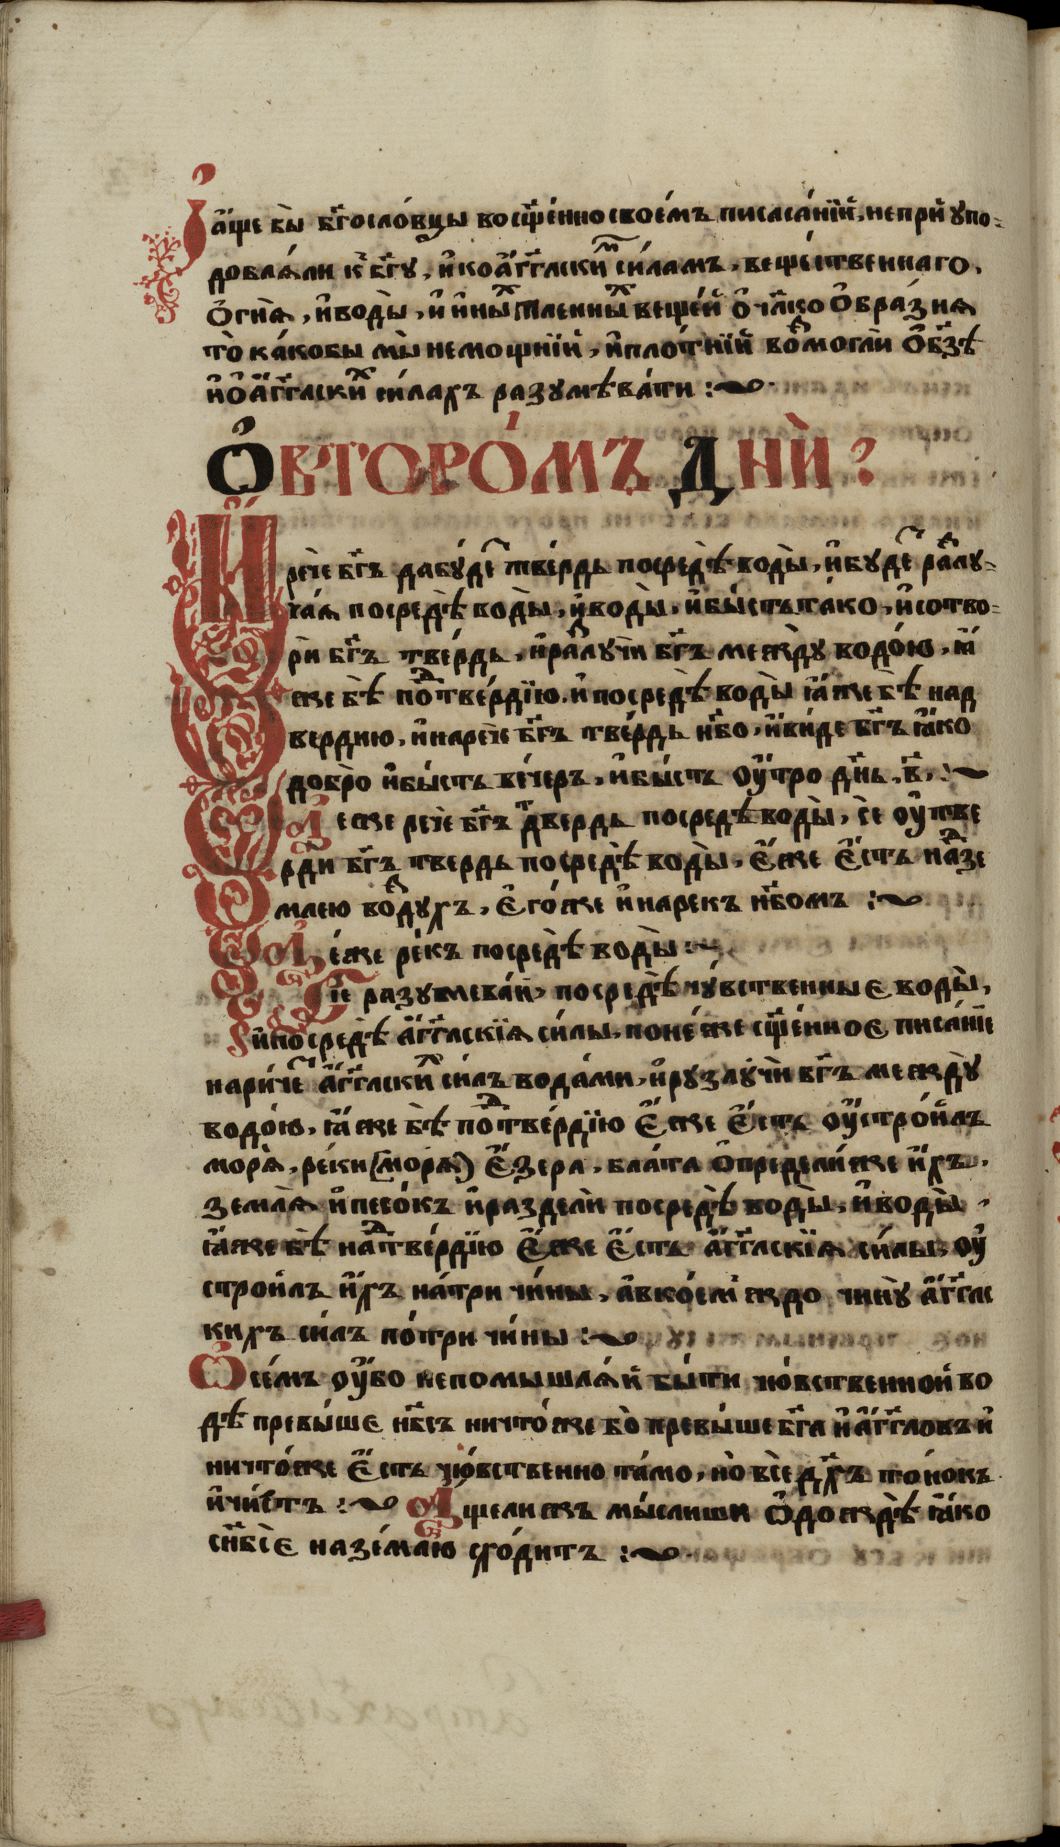 І҆ а҆ще бы̀ бг҃осло́вцы восщ҃е́нно свое́мъ писаса́нїи, непри́ упо-
добля́ли к бг҃у, и҆ко а҆́гг҃лски́м си́ламъ, веще́ственнаго,
о҆гня̀, и҆воды̀, и҆ и҆ны́х тле́нны́х веще́й о҆ чл҃ко о҆бра́зня
то̀ ка́кобы мы̀ немощнїи, и҆пло́тнїи возмоглѝ о҆ бз҃ѣ
и҆ о҆ а҆́гг҃лски́х си́лахъ разумѣва́ти :~
О҆ВТОРО́МЪ ДНЍ :
И҆ рече бг҃ъ дабу́дет тве́рдь посредѣ̀ воды̀, и҆ буде́т разлу-
чая посредѣ̀ воды̀, и҆ воды̀, и҆бы́сть та́ко, и҆ сотво-
ри бг҃ъ тве́рдь, и҆разлучи бг҃ъ ме́жду водо́ю, ꙗ҆́
же бѣ̀ подтве́рдїю. и҆ посредѣ̀ воды̀ ꙗ҆́же бѣ̀ над
вердию, и҆ нарече бг҃ъ тве́рдь нб҃о, и҆ви́де бг҃ъ ꙗ҆́ко
добро̀ и҆бы́сть ве́черъ, и҆бы́сть оу҆́тро дн҃ь, в҃, :~
А҆ е́же рече бг҃ъ тверды посредѣ̀ воды̀, сѐ оу҆тве
рди бг҃ъ твердь посредѣ̀ воды̀, є҆́же є҆́сть надзе
млею воздухъ, є҆го́же и҆ нарекъ нб҃омъ :~
А҆ е́же ре́къ посредѣ̀ воды̀ :~
Сїе разумлева́й, посредѣ̀ чу́вственныє воды̀,
и҆ посредѣ̀ а҆́гг҃лскїя си́лы, поне́же сщ҃е́нноє писа́нїе
нари́чет а҆́гг҃лски́х си́лъ вода́ми, и҆ рузлучи́ бг҃ъ ме́жду̀
водо́ю, ꙗ҆́же бѣ̀ подтве́рдїю є҆́же є҆́сть оу҆стро́илъ
моря̀, ре́ки (моря̀) є҆́зера, бла́та о҆предели́же и҆́хъ,
земля̀ и҆песо́къ и҆раздели посредѣ̀ воды̀, и҆воды̀,
ꙗ҆́же бѣ̀ надтве́рдїю є҆́же є҆́сть а҆́гг҃лскїя си́лы, оу҆
строи́лъ и҆́хъ на́три чи́ны, а҆вко́емждо чину̀ а҆́гг҃лс
кихъ си́лъ по́три чи́ны :~
Ѡ҆ се́мъ оу҆́бо непомышля́й бы́ти чю́вственной во
дѣ̀ превы́шє нб҃съ ничто́же бо̀ превы́ше бг҃а и҆ а҆́гг҃ловъ и҆
ничто́же є҆́сть чю́вственно та́мо, но̀ всѐ дх҃ъ то́нокъ
и҆чи́стъ :~ А҆ щелижъ мы́слиши ѡ҆ дождѣ̀ ꙗ҆́ко
снб҃сіє назе́млю сходитъ :~